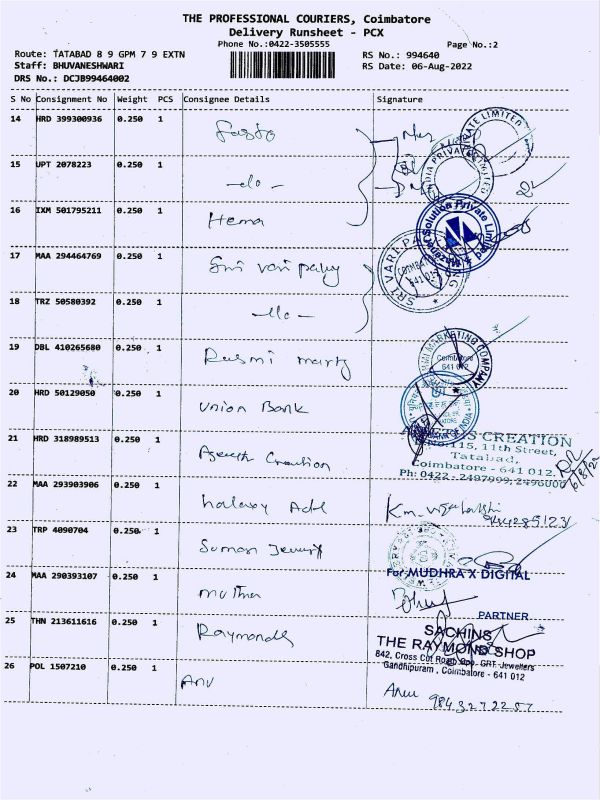 THE PROFESSIONAL COURIERS, Coimbatore
Delivery Runsheet - PCX
Phone No.:0422-3505555
Page No.:2
Route: TATABAD 8 9 GPM 7 9 EXTN
RS No.: 994640
Staff: BHUVANESHWARI
RS Date: 06-Aug-2022
DRS No.: DCJB99464002
S No Consignment No Weight PCS Consignee Details Signature
14 HRD 399300936 0.250 1
15 UPT 2078223 0.250 1 -do-
16 IXM 501795211 0.250 1 Hema
17 MAA 294464769 0.250 1 Sri vari
18 TRZ 50580392 0.250 1 -do-
19 DBL 410265680 0.250 1 Rasmi
MARKETING COMPANY
Coimbatore
641 012
20 HRD 50129050 0.250 1 Union Bank
21 HRD 318989513 0.250 1 Creation
CREATION
115, 11th Street,
Tatabad,
Coimbatore - 641 012.
Ph: 0422 - 2497999, 2496000
6/8/22
22 MAA 293903906 0.250 1
23 TRP 4090704 0.250 1 Suman
24 MAA 290393107 0.250 1
For MUDHRA X DIGITAL
PARTNER
25 THN 213611616 0.250 1 Raymonds
SACHINS
THE RAYMOND SHOP
842, Cross Cut Road, Opp. GRT Jewellers
Gandhipuram, Coimbatore - 641 012
26 POL 1507210 0.250 1 Anu